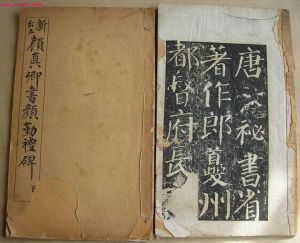 新出土
顏真卿書顏勤禮碑
下
唐祕書省
著作郎夔州
都督府長